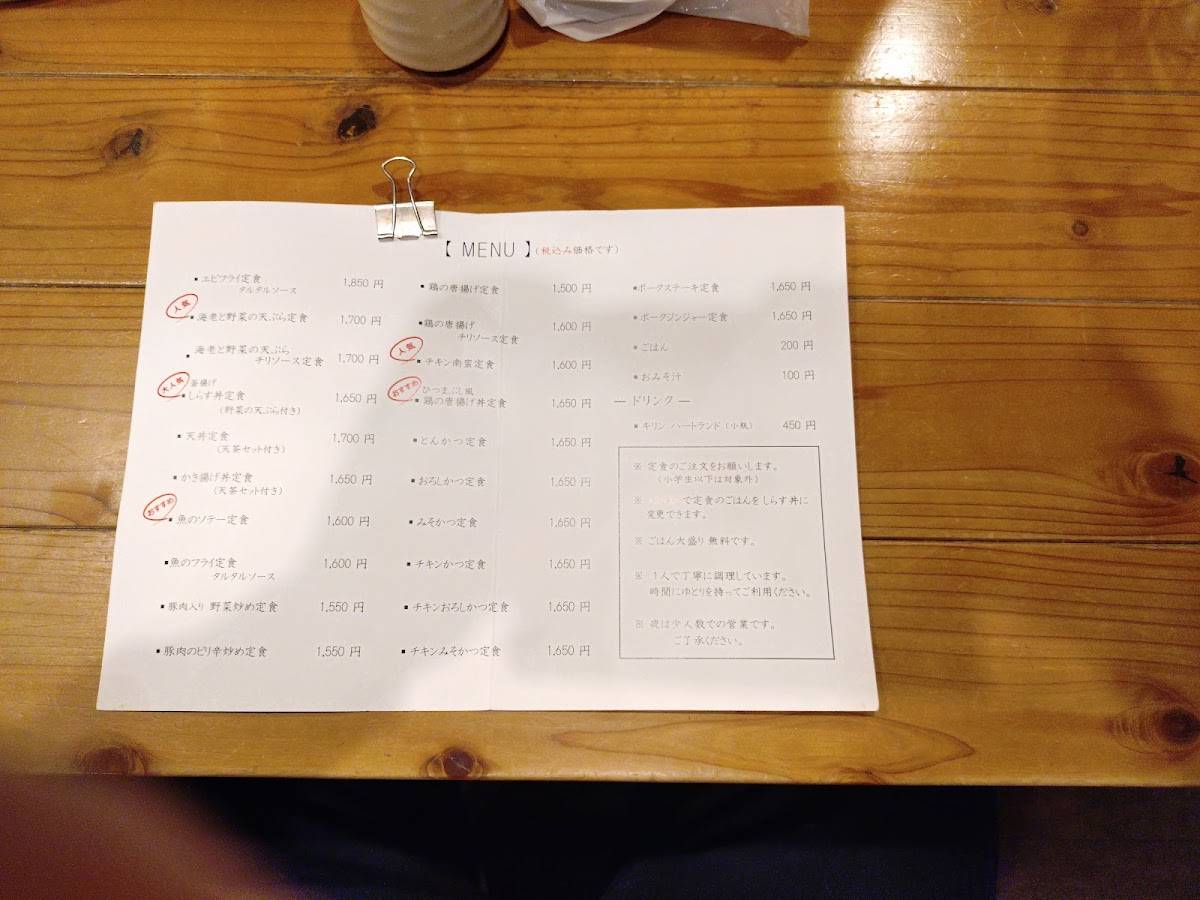 【 MENU 】(税込み価格です)
▪エビフライ定食 1,850 円
タルタルソース
人気
▪海老と野菜の天ぷら定食 1,700 円
▪海老と野菜の天ぷら
チリソース定食 1,700 円
大人気
釜揚げ
▪しらす丼定食 1,650 円
(野菜の天ぷら付き)
▪天丼定食 1,700 円
(天茶セット付き)
▪かき揚げ丼定食 1,650 円
(天茶セット付き)
おすすめ
▪魚のソテー定食 1,600 円
▪魚のフライ定食 1,600 円
タルタルソース
▪豚肉入り 野菜炒め定食 1,550 円
▪豚肉のピリ辛炒め定食 1,550 円
▪鶏の唐揚げ定食 1,500 円
▪鶏の唐揚げ 1,600 円
チリソース定食
人気
▪チキン南蛮定食 1,600 円
おすすめ
ひつまぶし風
▪鶏の唐揚げ丼定食 1,650 円
▪とんかつ定食 1,650 円
▪おろしかつ定食 1,650 円
▪みそかつ定食 1,650 円
▪チキンかつ定食 1,650 円
▪チキンおろしかつ定食 1,650 円
▪チキンみそかつ定食 1,650 円
▪ポークステーキ定食 1,650 円
▪ポークジンジャー定食 1,650 円
▪ごはん 200 円
▪おみそ汁 100 円
― ドリンク ―
▪キリン ハートランド (小瓶) 450 円
※ 定食のご注文をお願いします。
(小学生以下は対象外)
※ で定食のごはんをしらす丼に
変更できます。
※ ごはん大盛り 無料です。
※ 1人で丁寧に調理しています。
時間にゆとりを持ってご利用ください。
※ 夜は少人数での営業です。
ご了承ください。